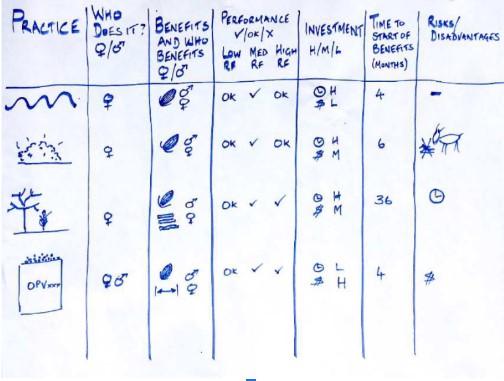 PRACTICE
WHO
DOES IT?
♀/♂
BENEFITS
AND WHO
BENEFITS
♀/♂
PERFORMANCE
✓/OK/X
LOW MED HIGH
RF RF RF
INVESTMENT
H/M/L
TIME TO
START OF
BENEFITS
(MONTHS)
RISKS/
DISADVANTAGES
♀ ♂ ♀ OK ✓ OK H 4 -
$ L
♀ ♂ ♀ OK ✓ OK H 6
$ M
♀ ♂ ♀ OK ✓ ✓ H 36
$ M
OPV
♀♂ ♂ ♀ OK ✓ ✓ L 4 $
$ H